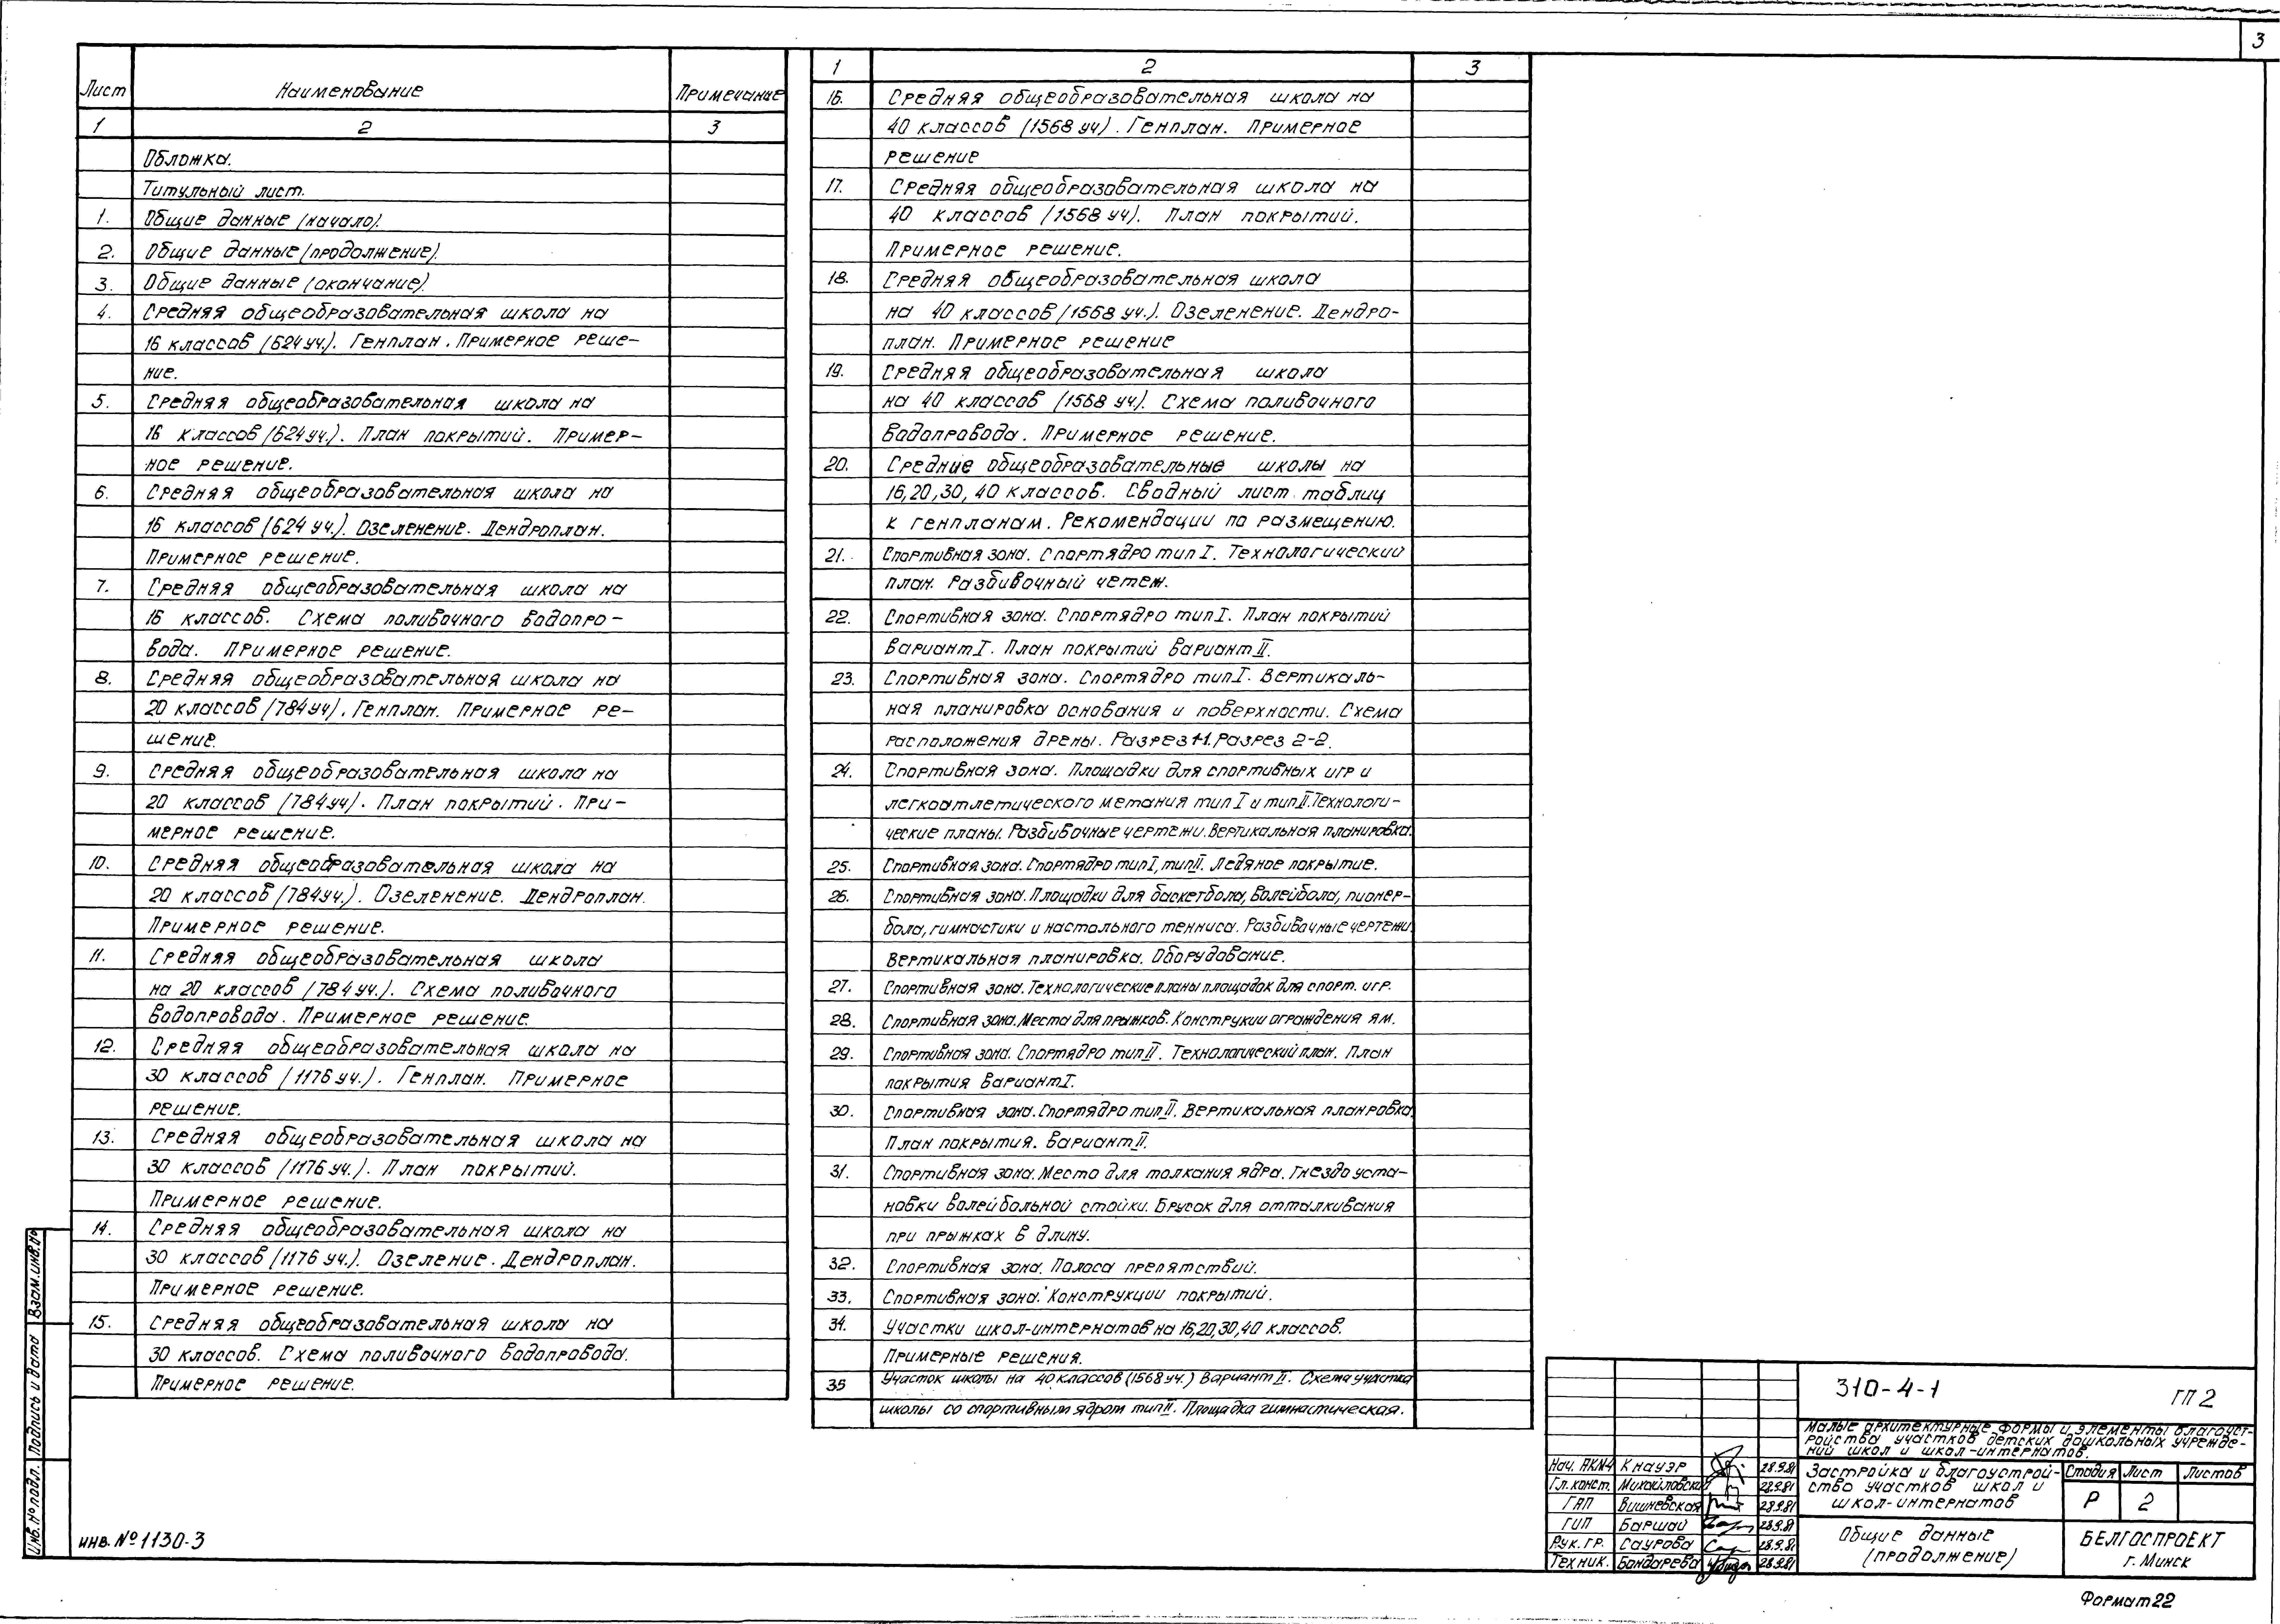 3
Лист Наименование Примечание
1 2 3
Обложка.
Титульный лист.
1. Общие данные (начало).
2. Общие данные (продолжение).
3. Общие данные (окончание)
4. Средняя общеобразовательная школа на
16 классов (624 уч.). Генплан. Примерное реше-
ние.
5. Средняя общеобразовательная школа на
16 классов (624 уч.). План покрытий. Пример-
ное решение.
6. Средняя общеобразовательная школа на
16 классов (624 уч.). Озеленение. Дендроплан.
Примерное решение.
7. Средняя общеобразовательная школа на
16 классов. Схема поливочного водопро-
вода. Примерное решение.
8. Средняя общеобразовательная школа на
20 классов (784 уч). Генплан. Примерное ре-
шение.
9. Средняя общеобразовательная школа на
20 классов (784 уч). План покрытий. При-
мерное решение.
10. Средняя общеобразовательная школа на
20 классов (784 уч.). Озеленение. Дендроплан.
Примерное решение.
11. Средняя общеобразовательная школа
на 20 классов (784 уч.). Схема поливочного
водопровода. Примерное решение.
12. Средняя общеобразовательная школа на
30 классов (1176 уч.). Генплан. Примерное
решение.
13. Средняя общеобразовательная школа на
30 классов (1176 уч.). План покрытий.
Примерное решение.
14. Средняя общеобразовательная школа на
30 классов (1176 уч.). Озеление. Дендроплан.
Примерное решение.
15. Средняя общеобразовательная школа на
30 классов. Схема поливочного водопровода.
Примерное решение.
1 2 3
16. Средняя общеобразовательная школа на
40 классов (1568 уч). Генплан. Примерное
решение
17. Средняя общеобразовательная школа на
40 классов (1568 уч). План покрытий.
Примерное решение.
18. Средняя общеобразовательная школа
на 40 классов (1568 уч.). Озеленение. Дендро-
план. Примерное решение
19. Средняя общеобразовательная школа
на 40 классов (1568 уч.). Схема поливочного
водопровода. Примерное решение.
20. Средние общеобразовательные школы на
16, 20, 30, 40 классов. Сводный лист таблиц
к генпланам. Рекомендации по размещению.
21. Спортивная зона. Спортядро тип I. Технологический
план. Разбивочный четеж.
22. Спортивная зона. Спортядро тип I. План покрытий
Вариант I. План покрытий Вариант II.
23. Спортивная зона. Спортядро тип I. Вертикаль-
ная планировка основания и поверхности. Схема
расположения дрены. Разрез 1-1. Разрез 2-2.
24. Спортивная зона. Площадки для спортивных игр и
легкоатлетического метания тип I и тип II. Технологи-
ческие планы. Разбивочные чертежи. Вертикальная планировка.
25. Спортивная зона. Спортядро тип I, тип II. Ледяное покрытие.
26. Спортивная зона. Площадки для баскетбола, волейбола, пионер-
бола, гимнастики и настольного тенниса. Разбивочные чертежи
Вертикальная планировка. Оборудование.
27. Спортивная зона. Технологические планы площадок для спорт. игр.
28. Спортивная зона. Места для прыжков. Конструкии ограждения ям.
29. Спортивная зона. Спортядро тип II. Технологический план. План
покрытия Вариант I.
30. Спортивная зона. Спортядро тип II. Вертикальная планровка
План покрытия. Вариант II.
31. Спортивная зона. Место для толкания ядра. Гнездо уста-
новки волейбольной стойки. Брусок для отталкивания
при прыжках в длину.
32. Спортивная зона. Полоса препятствий.
33. Спортивная зона. Конструкции покрытий.
34. Участки школ-интернатов на 16, 20, 30, 40 классов.
Примерные решения.
35 Участок школы на 40 классов (1568 уч.) Вариант II. Схема участка
школы со спортивным ядром тип II. Площадка гимнастическая.
310-4-1 ГП 2
Малые архитектурные формы и элементы благоуст-
ройства участков детских дошкольных учрежде-
ний школ и школ-интернатов.
Нач. АКМ4 Кнауэр 28.9.81
Гл. конст. Михайловский 28.9.81
ГАП Вишневская 28.9.81
ГИП Баршай 28.9.81
Рук. гр. Саурова 28.9.81
Техник. Бондарева 28.9.81
Застройка и благоустрой-
ство участков школ и
школ-интернатов
Стадия Лист Листов
Р 2
Общие данные
(продолжение)
БЕЛГОСПРОЕКТ
г. Минск
Формат 22
Инв. № подл. Подпись и дата Взам. инв. №
инв. № 1130-3